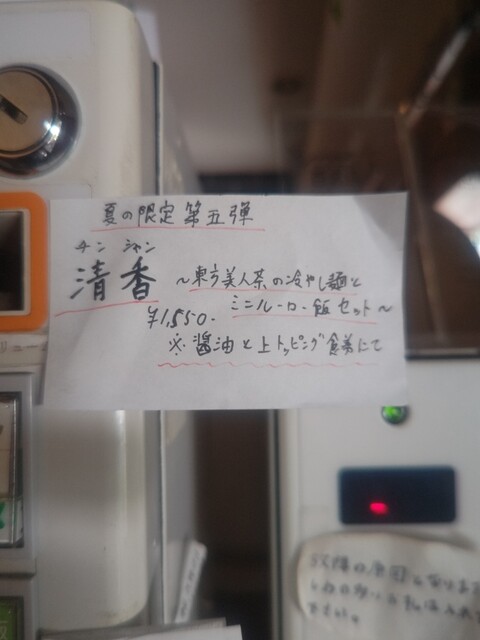 夏の限定第五弾
チン シャン
清香
～東方美人茶の冷やし麺と
ミニルーロー飯セット～
¥1,550-
※醤油と上トッピング食券にて